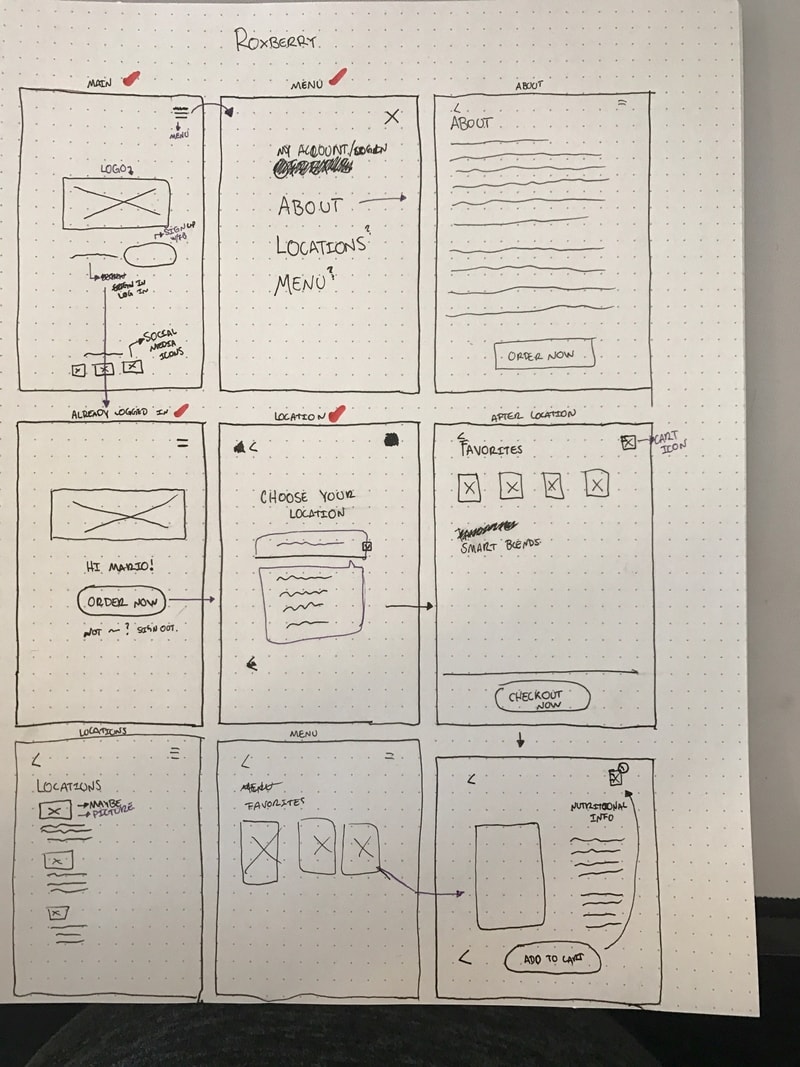 ROXBERRY
MAIN
MENU
LOGO?
SIGN UP
W/FB
SIGN IN
LOG IN
SOCIAL
MEDIA
ICONS
MENU
X
MY ACCOUNT/
ABOUT
LOCATIONS?
MENU?
ABOUT
<
ABOUT
ORDER NOW
ALREADY LOGGED IN
HI MARIO!
ORDER NOW
NOT ~? SIGN OUT.
LOCATION
<
CHOOSE YOUR
LOCATION
AFTER LOCATION
<
FAVORITES
CART
ICON
SMART BLENDS.
CHECKOUT
NOW
LOCATIONS
<
LOCATIONS
MAYBE
PICTURE
MENU
<
MENU
FAVORITES
<
NUTRITIONAL
INFO
<
ADD TO CART